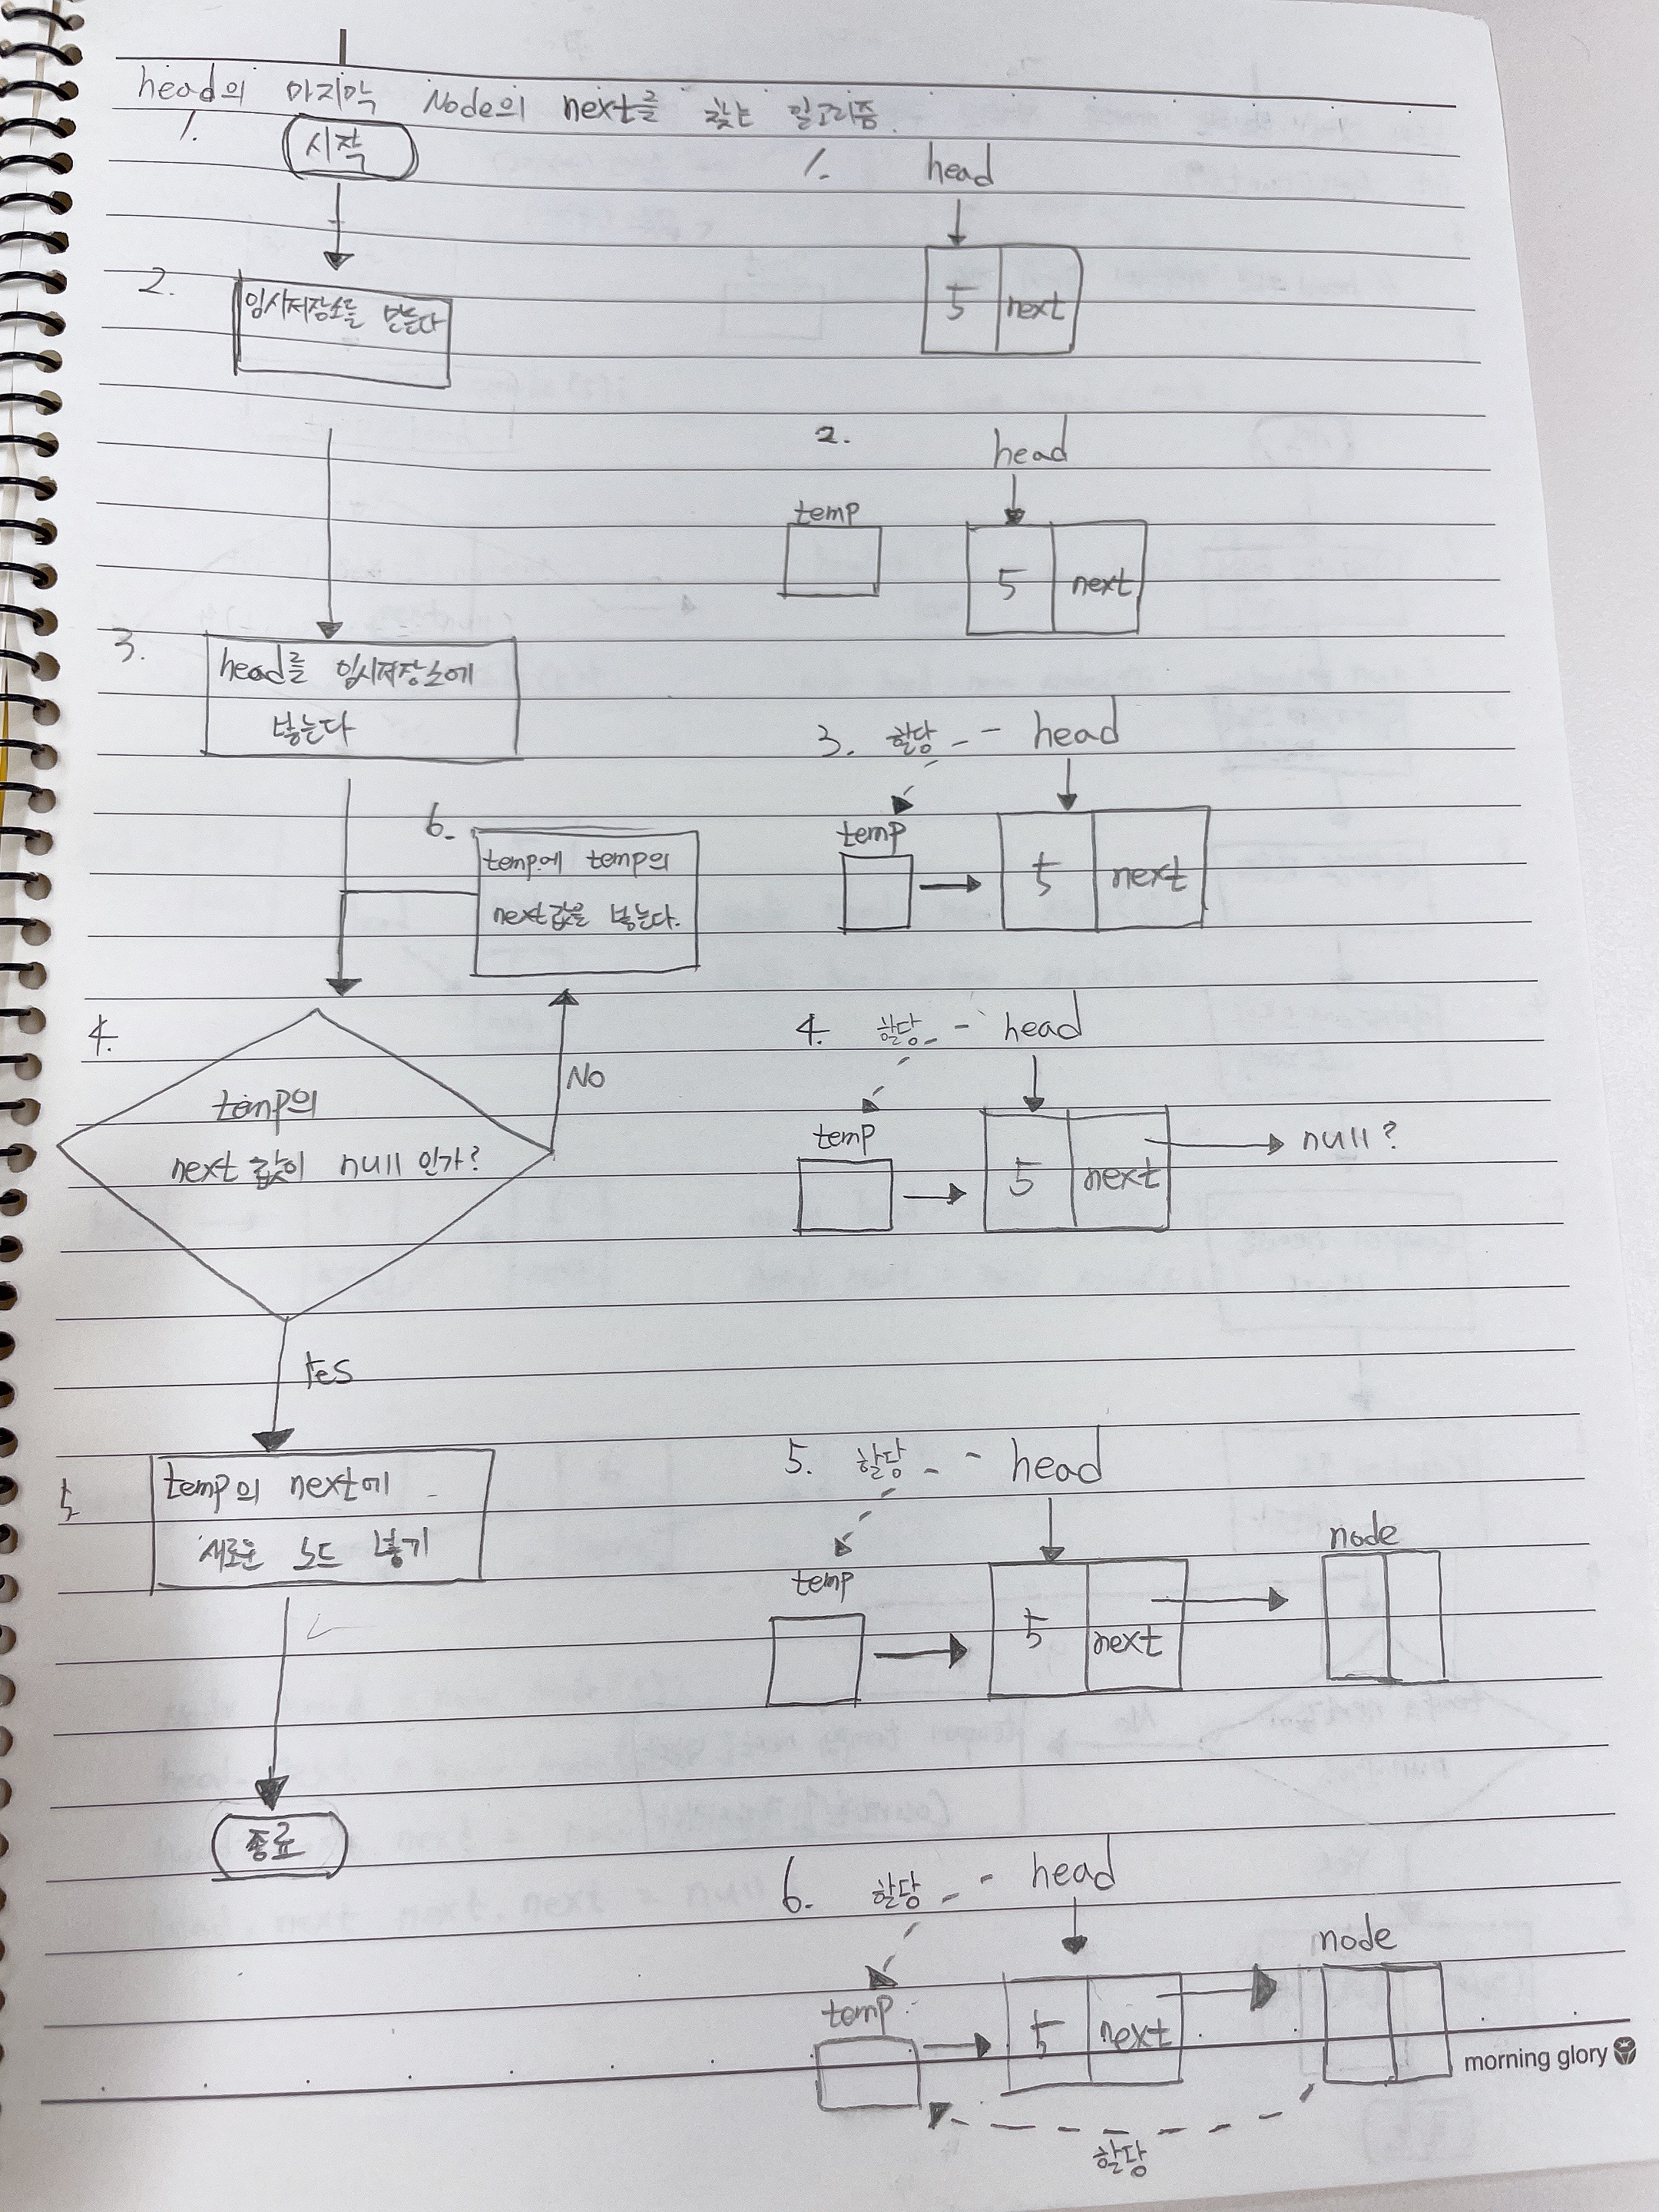 head의 마지막 Node의 next를 찾는 알고리즘.
1.
시작
2.
임시저장소를 만든다
3.
head를 임시저장소에
넣는다
6.
temp에 temp의
next값을 넣는다.
4.
temp의
next 값이 null 인가?
No
Yes
5
temp의 next에
새로운 노드 넣기
종료
1.
head
5
next
2.
head
temp
5
next
3. 할당 head
temp
5
next
4. 할당 head
temp
5
next
null?
5. 할당 head
node
temp
5
next
6. 할당 head
node
temp
5
next
할당
morning glory